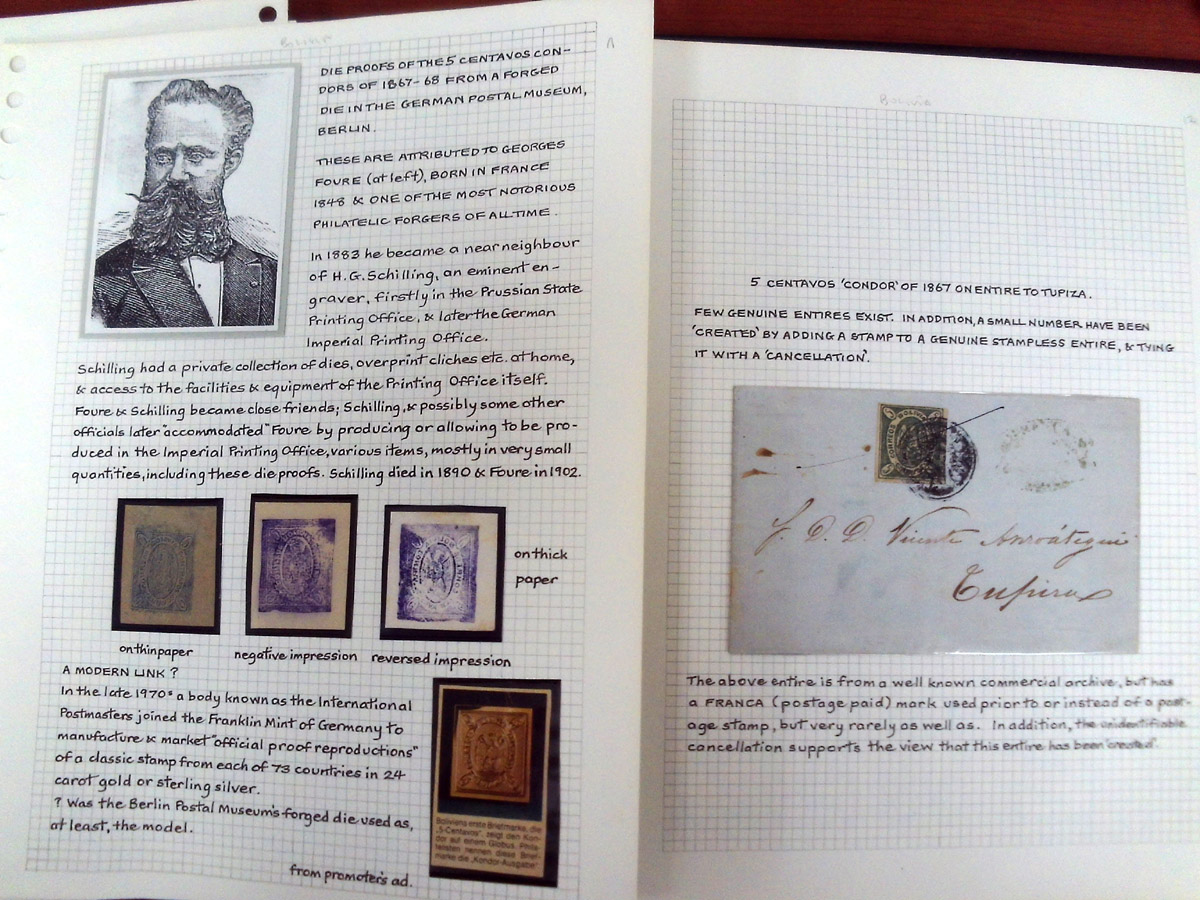 Bolivia
DIE PROOFS OF THE 5 CENTAVOS CON-
DORS OF 1867-68 FROM A FORGED
DIE IN THE GERMAN POSTAL MUSEUM,
BERLIN.
THESE ARE ATTRIBUTED TO GEORGES
FOURE (at left), BORN IN FRANCE
1848 & ONE OF THE MOST NOTORIOUS
PHILATELIC FORGERS OF ALL TIME.
In 1883 he became a near neighbour
of H.G. Schilling, an eminent en-
graver, firstly in the Prussian State
Printing Office, & later the German
Imperial Printing Office.
Schilling had a private collection of dies, overprint cliches etc. at home,
& access to the facilities & equipment of the Printing Office itself.
Foure & Schilling became close friends; Schilling, & possibly some other
officials later "accommodated" Foure by producing or allowing to be pro-
duced in the Imperial Printing Office, various items, mostly in very small
quantities, including these die proofs. Schilling died in 1890 & Foure in 1902.
on thick
paper
on thin paper
negative impression
reversed impression
A MODERN LINK ?
In the late 1970s a body known as the International
Postmasters joined the Franklin Mint of Germany to
manufacture & market "official proof reproductions"
of a classic stamp from each of 73 countries in 24
carot gold or sterling silver.
? Was the Berlin Postal Museum's forged die used as,
at least, the model.
from promoter's ad.
Boliviens erste Briefmarke, die
„5-Centavos", zeigt den Kon-
dor auf einem Globus. Phila-
telisten nennen diese Brief-
marke die „Kondor-Ausgabe"
Bolivia
5 CENTAVOS 'CONDOR' OF 1867 ON ENTIRE TO TUPIZA.
FEW GENUINE ENTIRES EXIST. IN ADDITION, A SMALL NUMBER HAVE BEEN
'CREATED' BY ADDING A STAMP TO A GENUINE STAMPLESS ENTIRE, & TYING
IT WITH A 'CANCELLATION'.
CORREOS BOLIVIA
D. D. Vicente
Tupiza
The above entire is from a well known commercial archive, but has
a FRANCA (postage paid) mark used prior to or instead of a post-
age stamp, but very rarely as well as. In addition, the unidentifiable
cancellation supports the view that this entire has been 'created'.